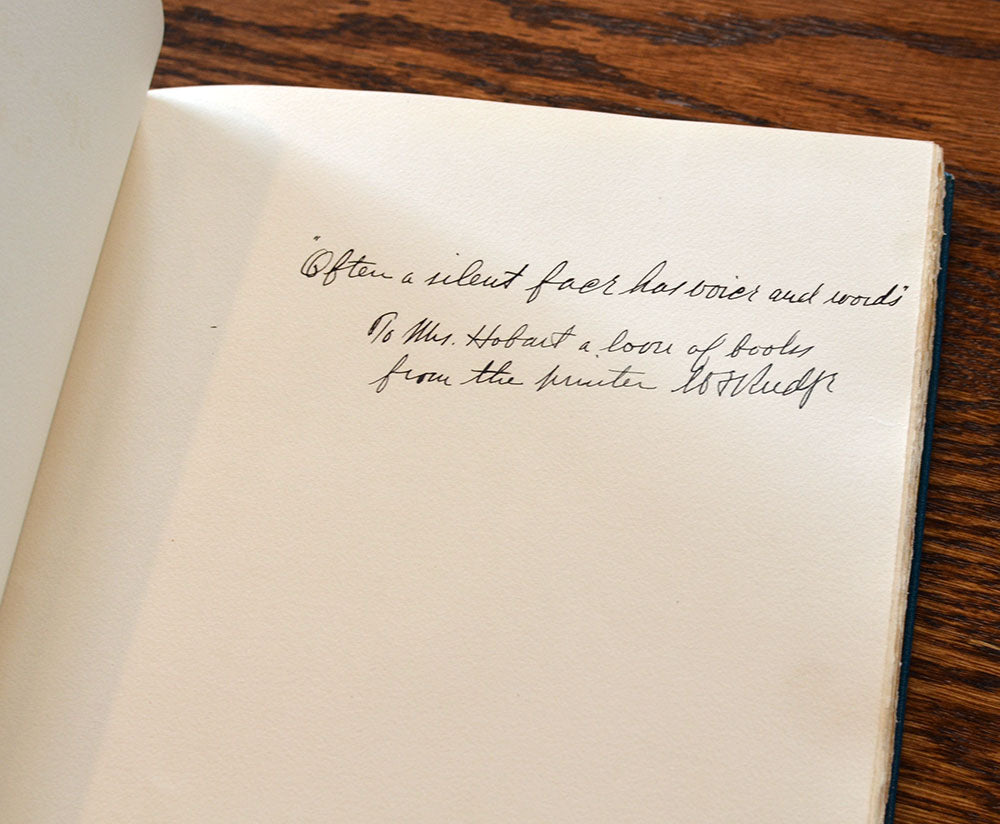 "Often a silent face has voice and words"
To Mrs. Hobart a lover of books
from the printer